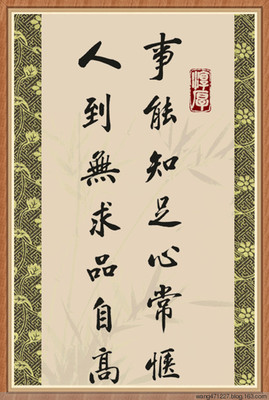 事能知足心常愜
人到無求品自高
wang471227.blog.163.com